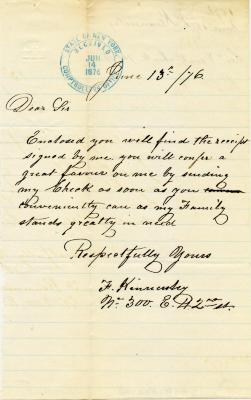 STATE OF NEW YORK
RECEIVED
JUN
14
1876
COMPTROLLER'S OFFICE
June 13th /76
Dear Sir
Enclosed you will find the receipt
signed by me, you will confer a
great favour on me by sending
my Check as soon as you
conveniently can as my Family
stands greatly in need
Respectfully Yours
F. Hennessey
No. 300. E. 42nd st.